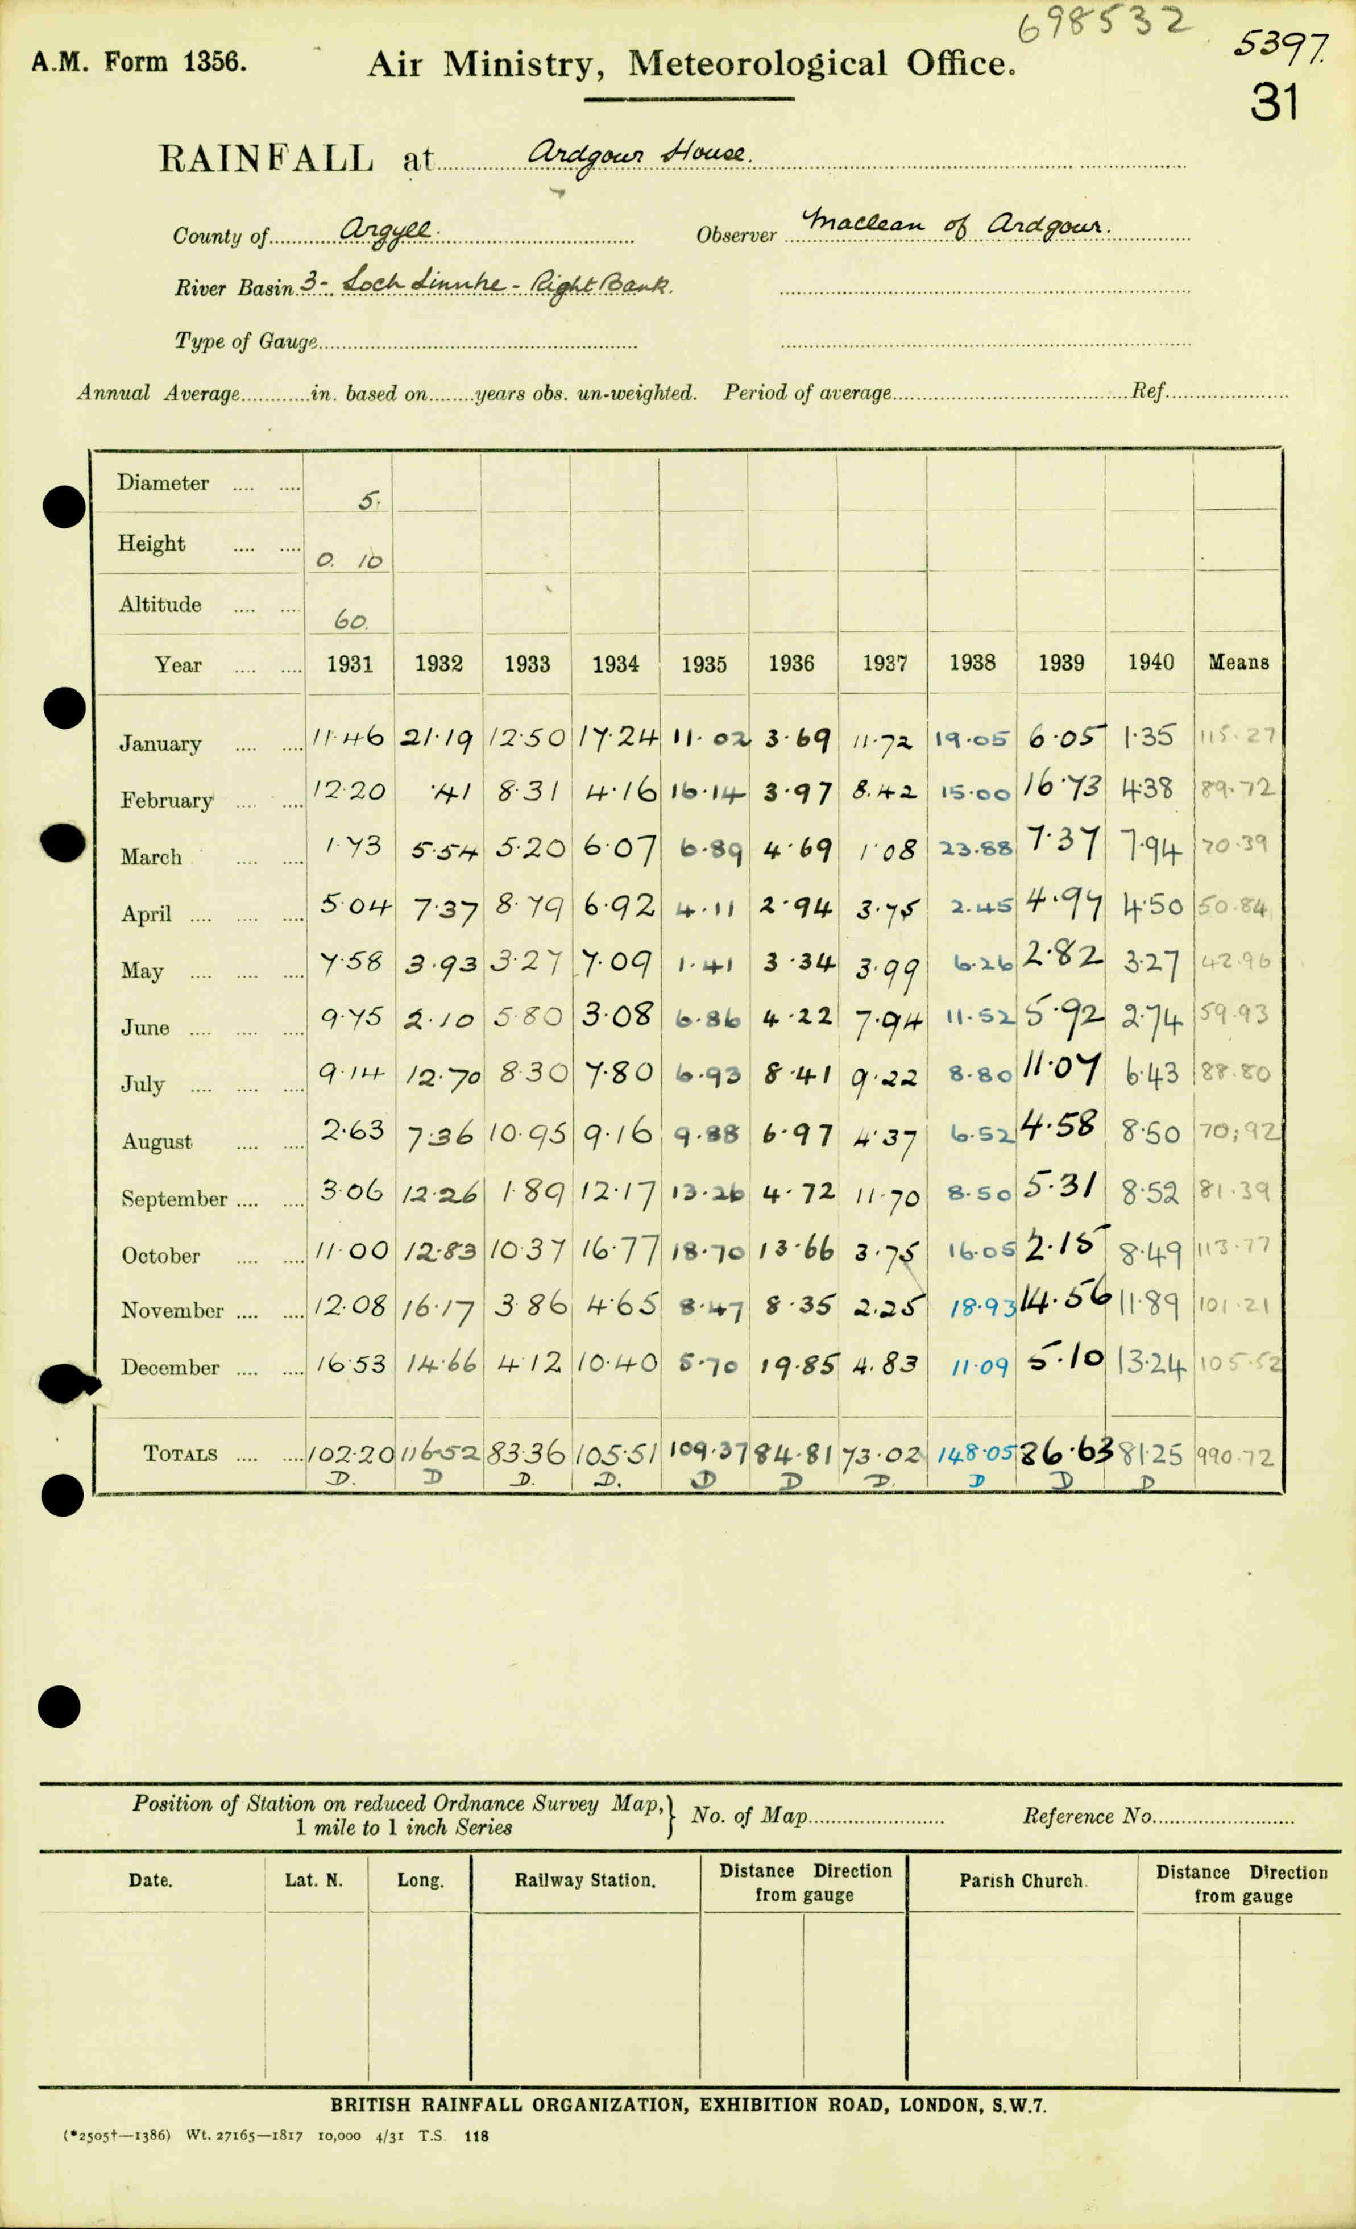 698532
5397.
31
A.M. Form 1356.
Air Ministry, Meteorological Office.
RAINFALL at Ardgour House.
County of Argyll. Observer Maclean of Ardgour.
River Basin 3-. Loch Linnhe - Right Bank.
Type of Gauge
Annual Average in. based on years obs. un-weighted. Period of average Ref.
Diameter 5.
Height 0. 10
Altitude 60.
Year 1931 1932 1933 1934 1935 1936 1937 1938 1939 1940 Means
January 11.46 21.19 12.50 17.24 11.02 3.69 11.72 19.05 6.05 1.35 115.27
February 12.20 .41 8.31 4.16 16.14 3.97 8.42 15.00 16.73 4.38 89.72
March 1.73 5.54 5.20 6.07 6.89 4.69 1.08 23.88 7.37 7.94 70.39
April 5.04 7.37 8.79 6.92 4.11 2.94 3.75 2.45 4.97 4.50 50.84
May 7.58 3.93 3.27 7.09 1.41 3.34 3.99 6.26 2.82 3.27 42.96
June 9.75 2.10 5.80 3.08 6.86 4.22 7.94 11.52 5.92 2.74 59.93
July 9.14 12.70 8.30 7.80 6.93 8.41 9.22 8.80 11.07 6.43 88.80
August 2.63 7.36 10.95 9.16 9.88 6.97 4.37 6.52 4.58 8.50 70.92
September 3.06 12.26 1.89 12.17 13.26 4.72 11.70 8.50 5.31 8.52 81.39
October 11.00 12.83 10.37 16.77 18.70 13.66 3.75 16.05 2.15 8.49 113.77
November 12.08 16.17 3.86 4.65 8.47 8.35 2.25 18.93 14.56 11.89 101.21
December 16.53 14.66 4.12 10.40 5.70 19.85 4.83 11.09 5.10 13.24 105.52
TOTALS 102.20 116.52 83.36 105.51 109.37 84.81 73.02 148.05 86.63 81.25 990.72
D. D D. D. D D D. D D D
Position of Station on reduced Ordnance Survey Map, 1 mile to 1 inch Series } No. of Map Reference No.
Date. Lat. N. Long. Railway Station. Distance Direction from gauge Parish Church. Distance Direction from gauge
BRITISH RAINFALL ORGANIZATION, EXHIBITION ROAD, LONDON, S.W.7.
(*2505†—1386) Wt. 27165—1817 10,000 4/31 T.S. 118